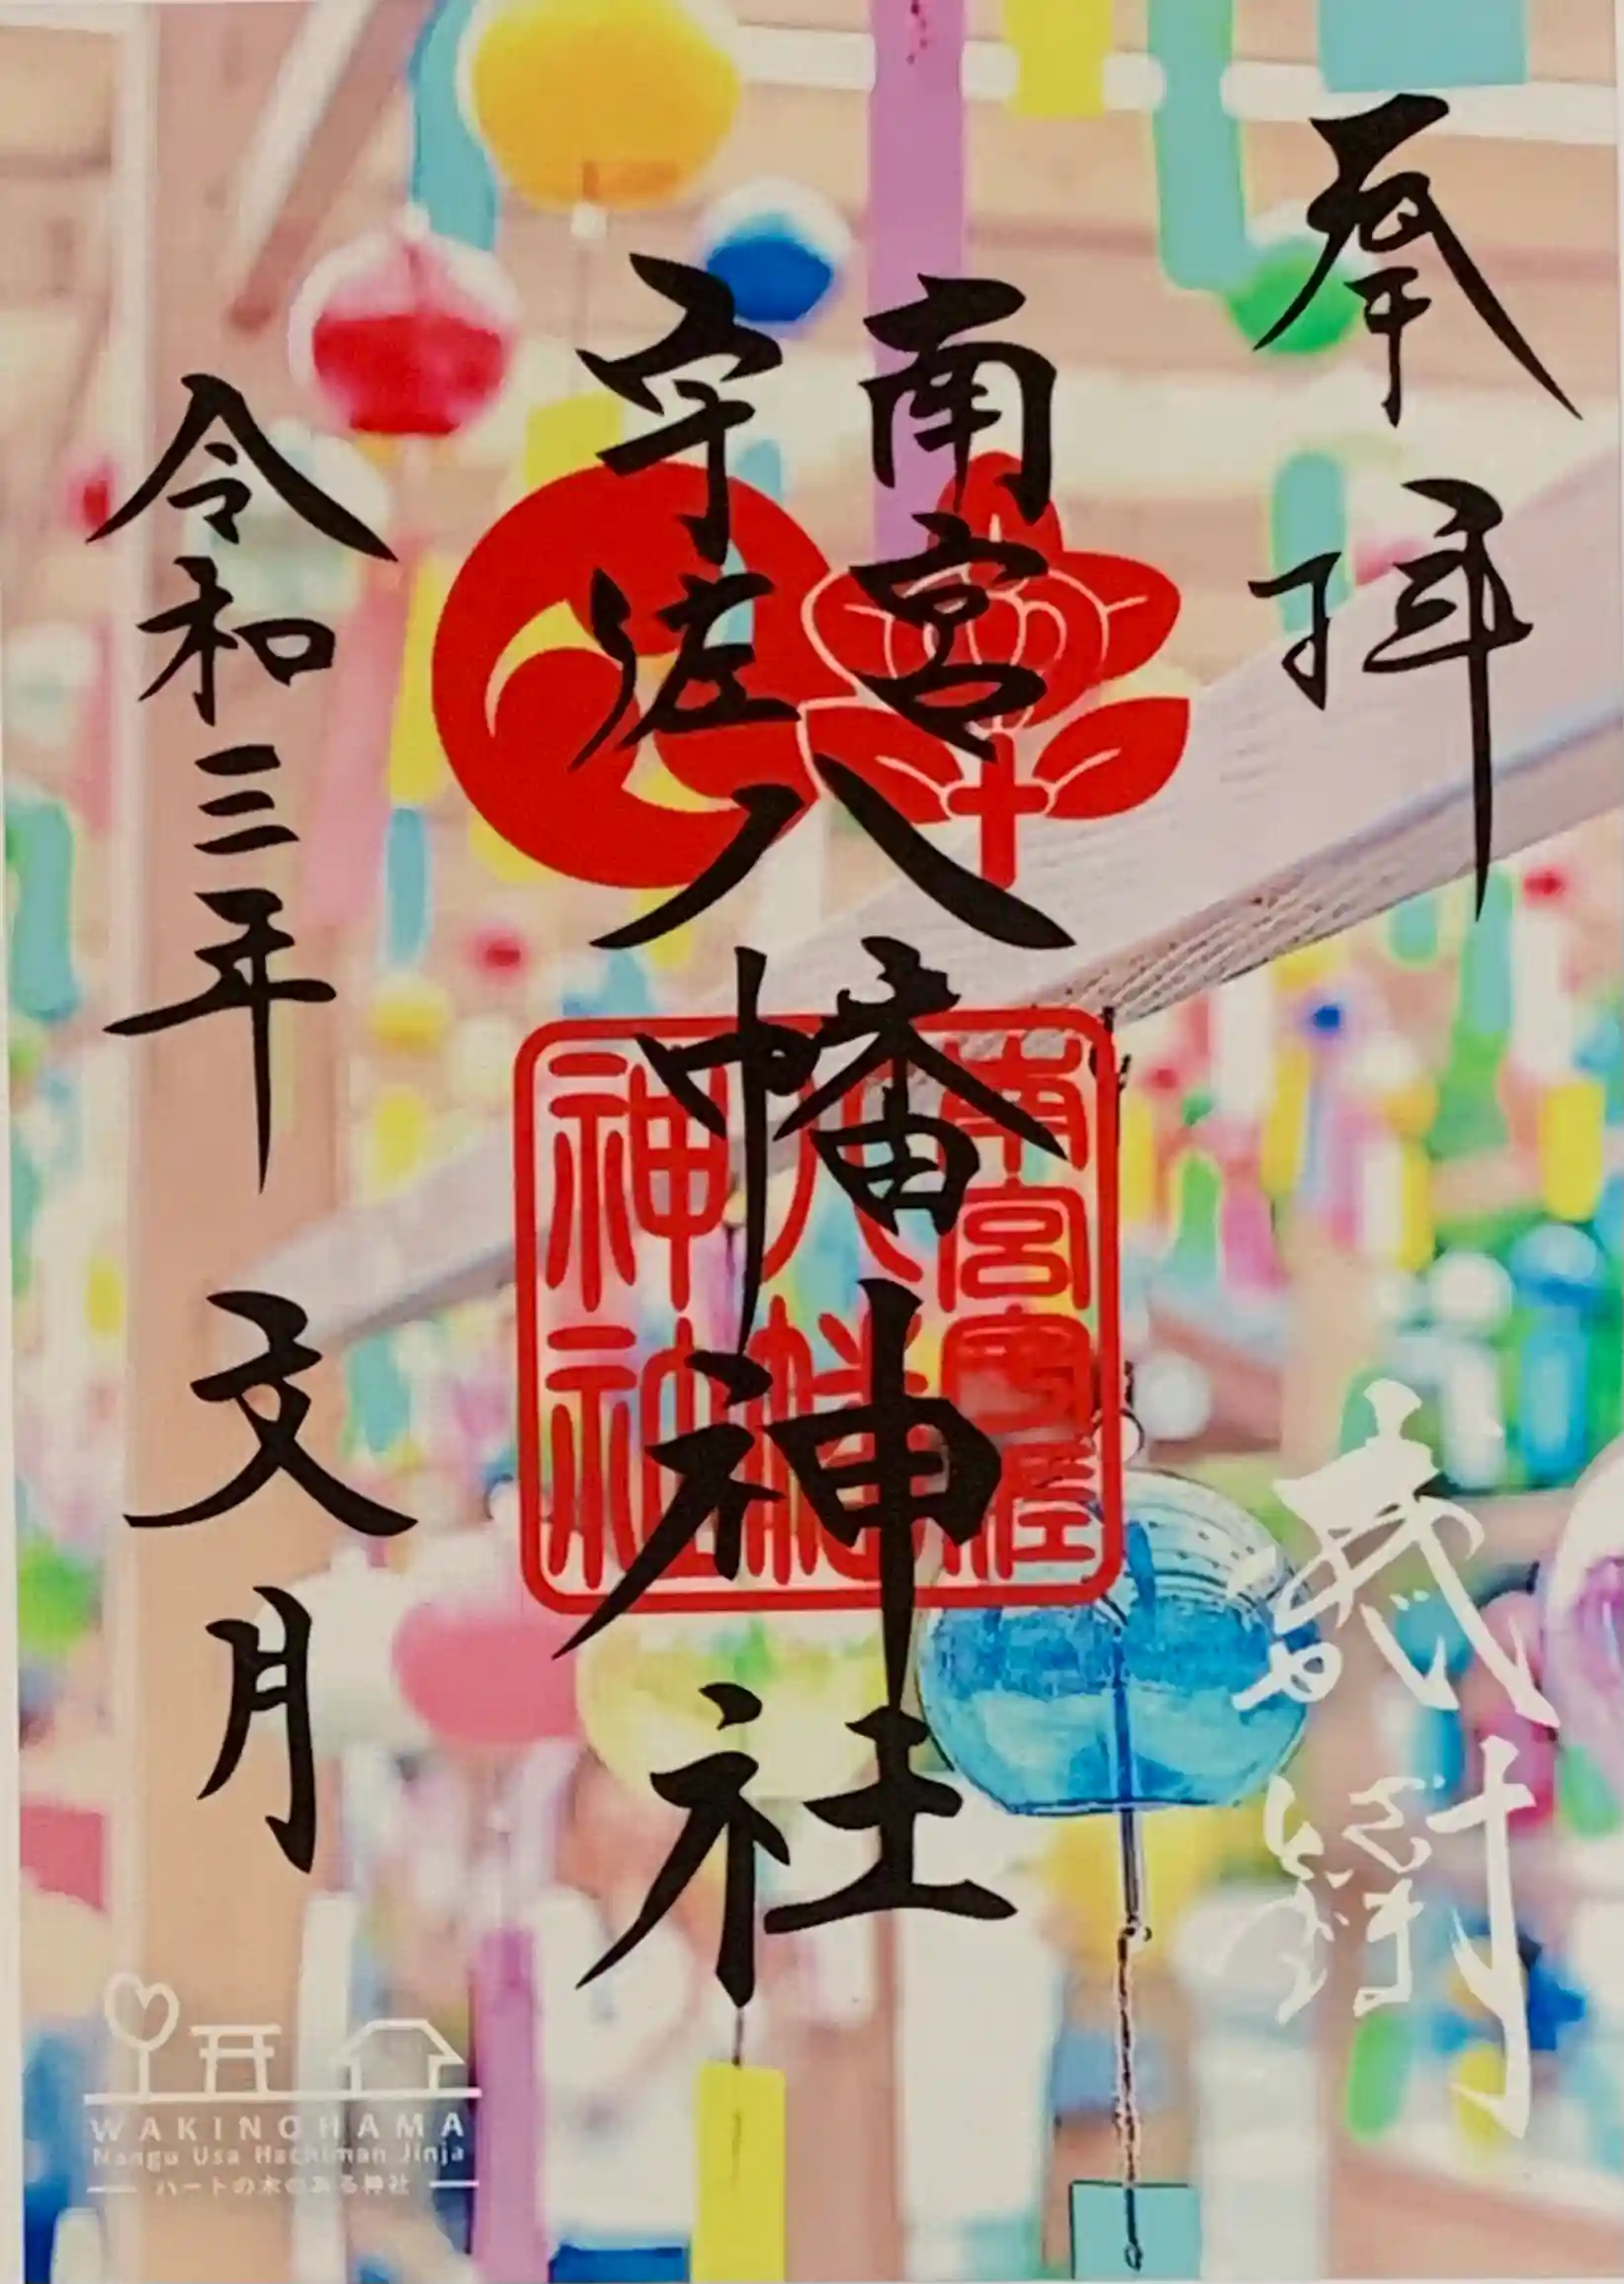 奉拝
南宮
宇佐八幡神社
南宮宇佐
八幡
神社
令和三年 文月
WAKINOHAMA
Nangu Usa Hachiman Jinja
ハートの木のある神社